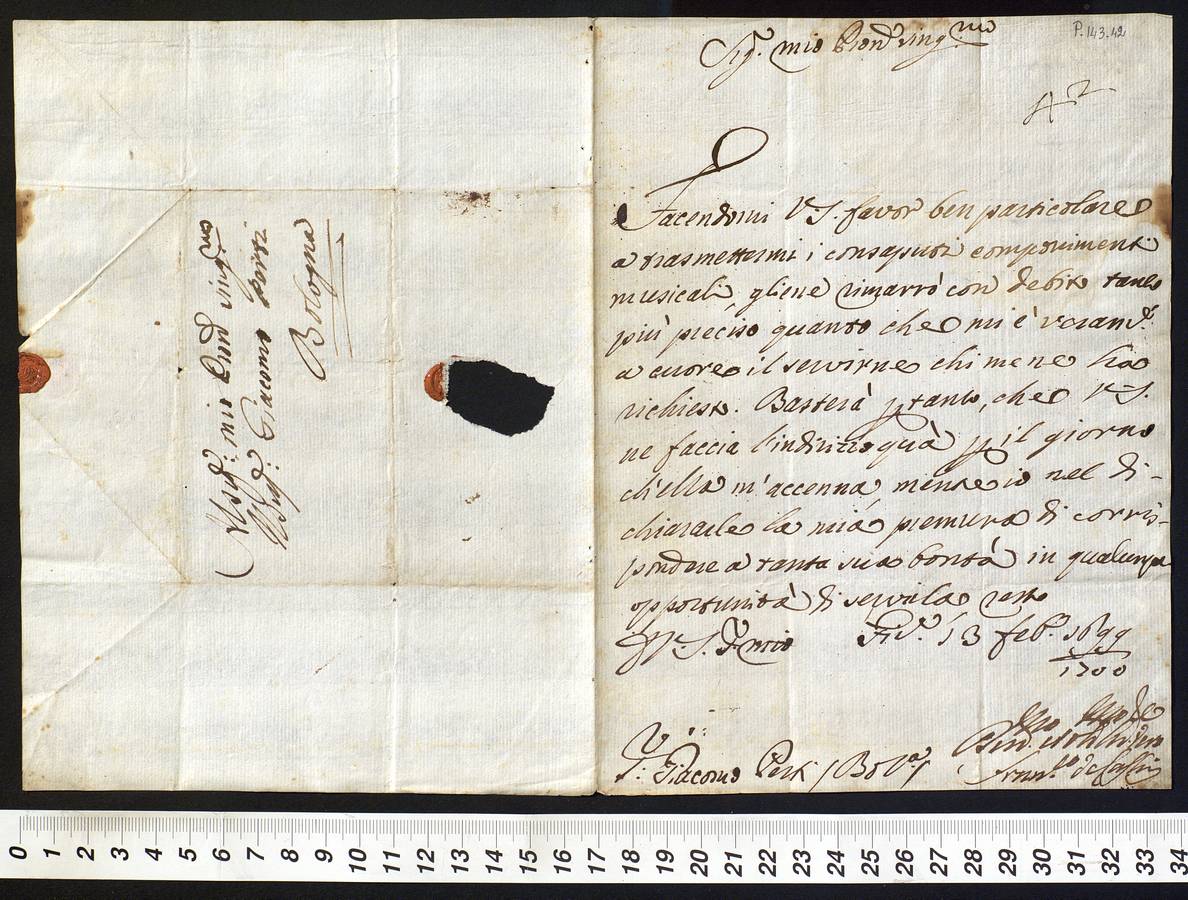 All Sig.r mio Pron sing.mo
Il Sig: Giacomo Perti
Bologna
P.143.42
Sig.r mio Pron sing.mo
42
Facendomi V.S. favor ben particolare
a trasmettermi i consaputi componimenti
musicali, gliene rimarrò con debito tanto
più preciso quanto che mi è grand.e
a cuore il servirne chi me ne ha
richiesto. Basterà p tanto, che V.S.
ne faccia l'indirizzo quà p il giorno
ch'ella m'accenna, mentre io nel di-
chiararle la mia premura di corris-
pondere a tanta sua bontà in qualunque
opportunità di servirla resto
Di V.S. Fir.e 13 feb.o 1699
1700
S.r Giacomo Perti / Bol.a /